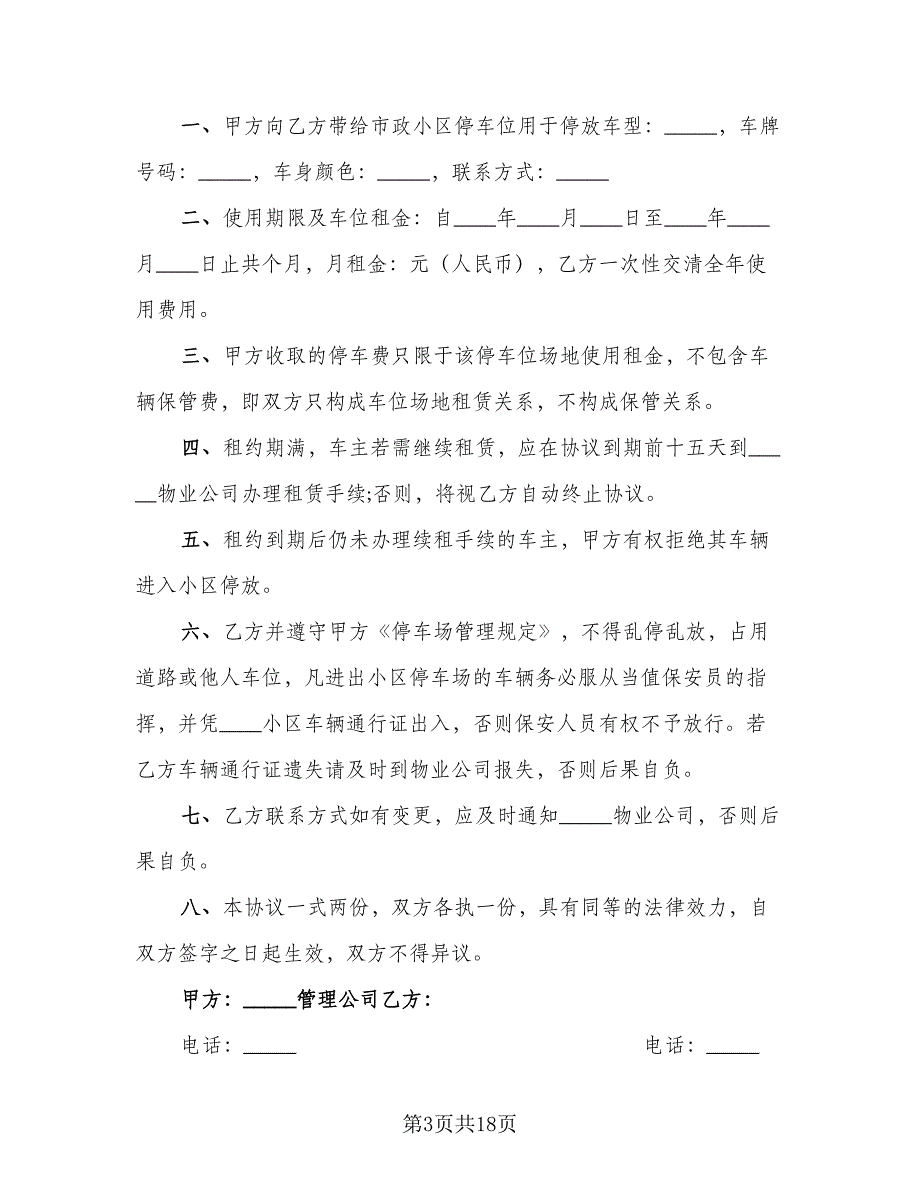 一、甲方向乙方带给市政小区停车位用于停放车型：_____，车牌
号码：_____，车身颜色：_____，联系方式：_____
二、使用期限及车位租金：自____年____月____日至____年____
月____日止共个月，月租金：元（人民币），乙方一次性交清全年使
用费用。
三、甲方收取的停车费只限于该停车位场地使用租金，不包含车
辆保管费，即双方只构成车位场地租赁关系，不构成保管关系。
四、租约期满，车主若需继续租赁，应在协议到期前十五天到___
__物业公司办理租赁手续;否则，将视乙方自动终止协议。
五、租约到期后仍未办理续租手续的车主，甲方有权拒绝其车辆
进入小区停放。
六、乙方并遵守甲方《停车场管理规定》，不得乱停乱放，占用
道路或他人车位，凡进出小区停车场的车辆务必服从当值保安员的指
挥，并凭____小区车辆通行证出入，否则保安人员有权不予放行。若
乙方车辆通行证遗失请及时到物业公司报失，否则后果自负。
七、乙方联系方式如有变更，应及时通知_____物业公司，否则后
果自负。
八、本协议一式两份，双方各执一份，具有同等的法律效力，自
双方签字之日起生效，双方不得异议。
甲方：_____管理公司乙方：
电话：_____ 电话：_____
第3页共18页